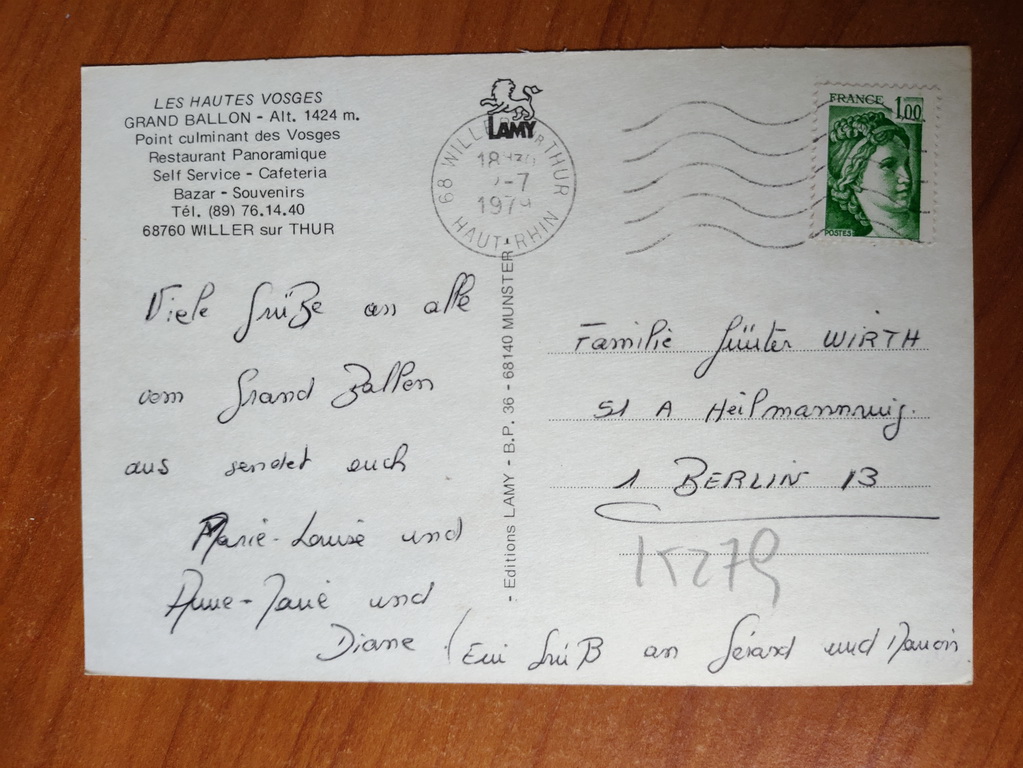 LES HAUTES VOSGES
GRAND BALLON - Alt. 1424 m.
Point culminant des Vosges
Restaurant Panoramique
Self Service - Cafeteria
Bazar - Souvenirs
Tél. (89) 76.14.40
68760 WILLER sur THUR
LAMY
68 WILLER sur THUR
18
-7
1979
HAUT-RHIN
FRANCE 1,00
POSTES
- Editions LAMY - B.P. 36 - 68140 MUNSTER -
Viele Grüße an alle
vom Grand Ballon
aus sendet euch
Marie-Louise und
Anne-Marie und
Diane (Ein Grüß an Gérard und
Familie Günter WIRTH
51 A Heilmannring.
1 BERLIN 13
K279